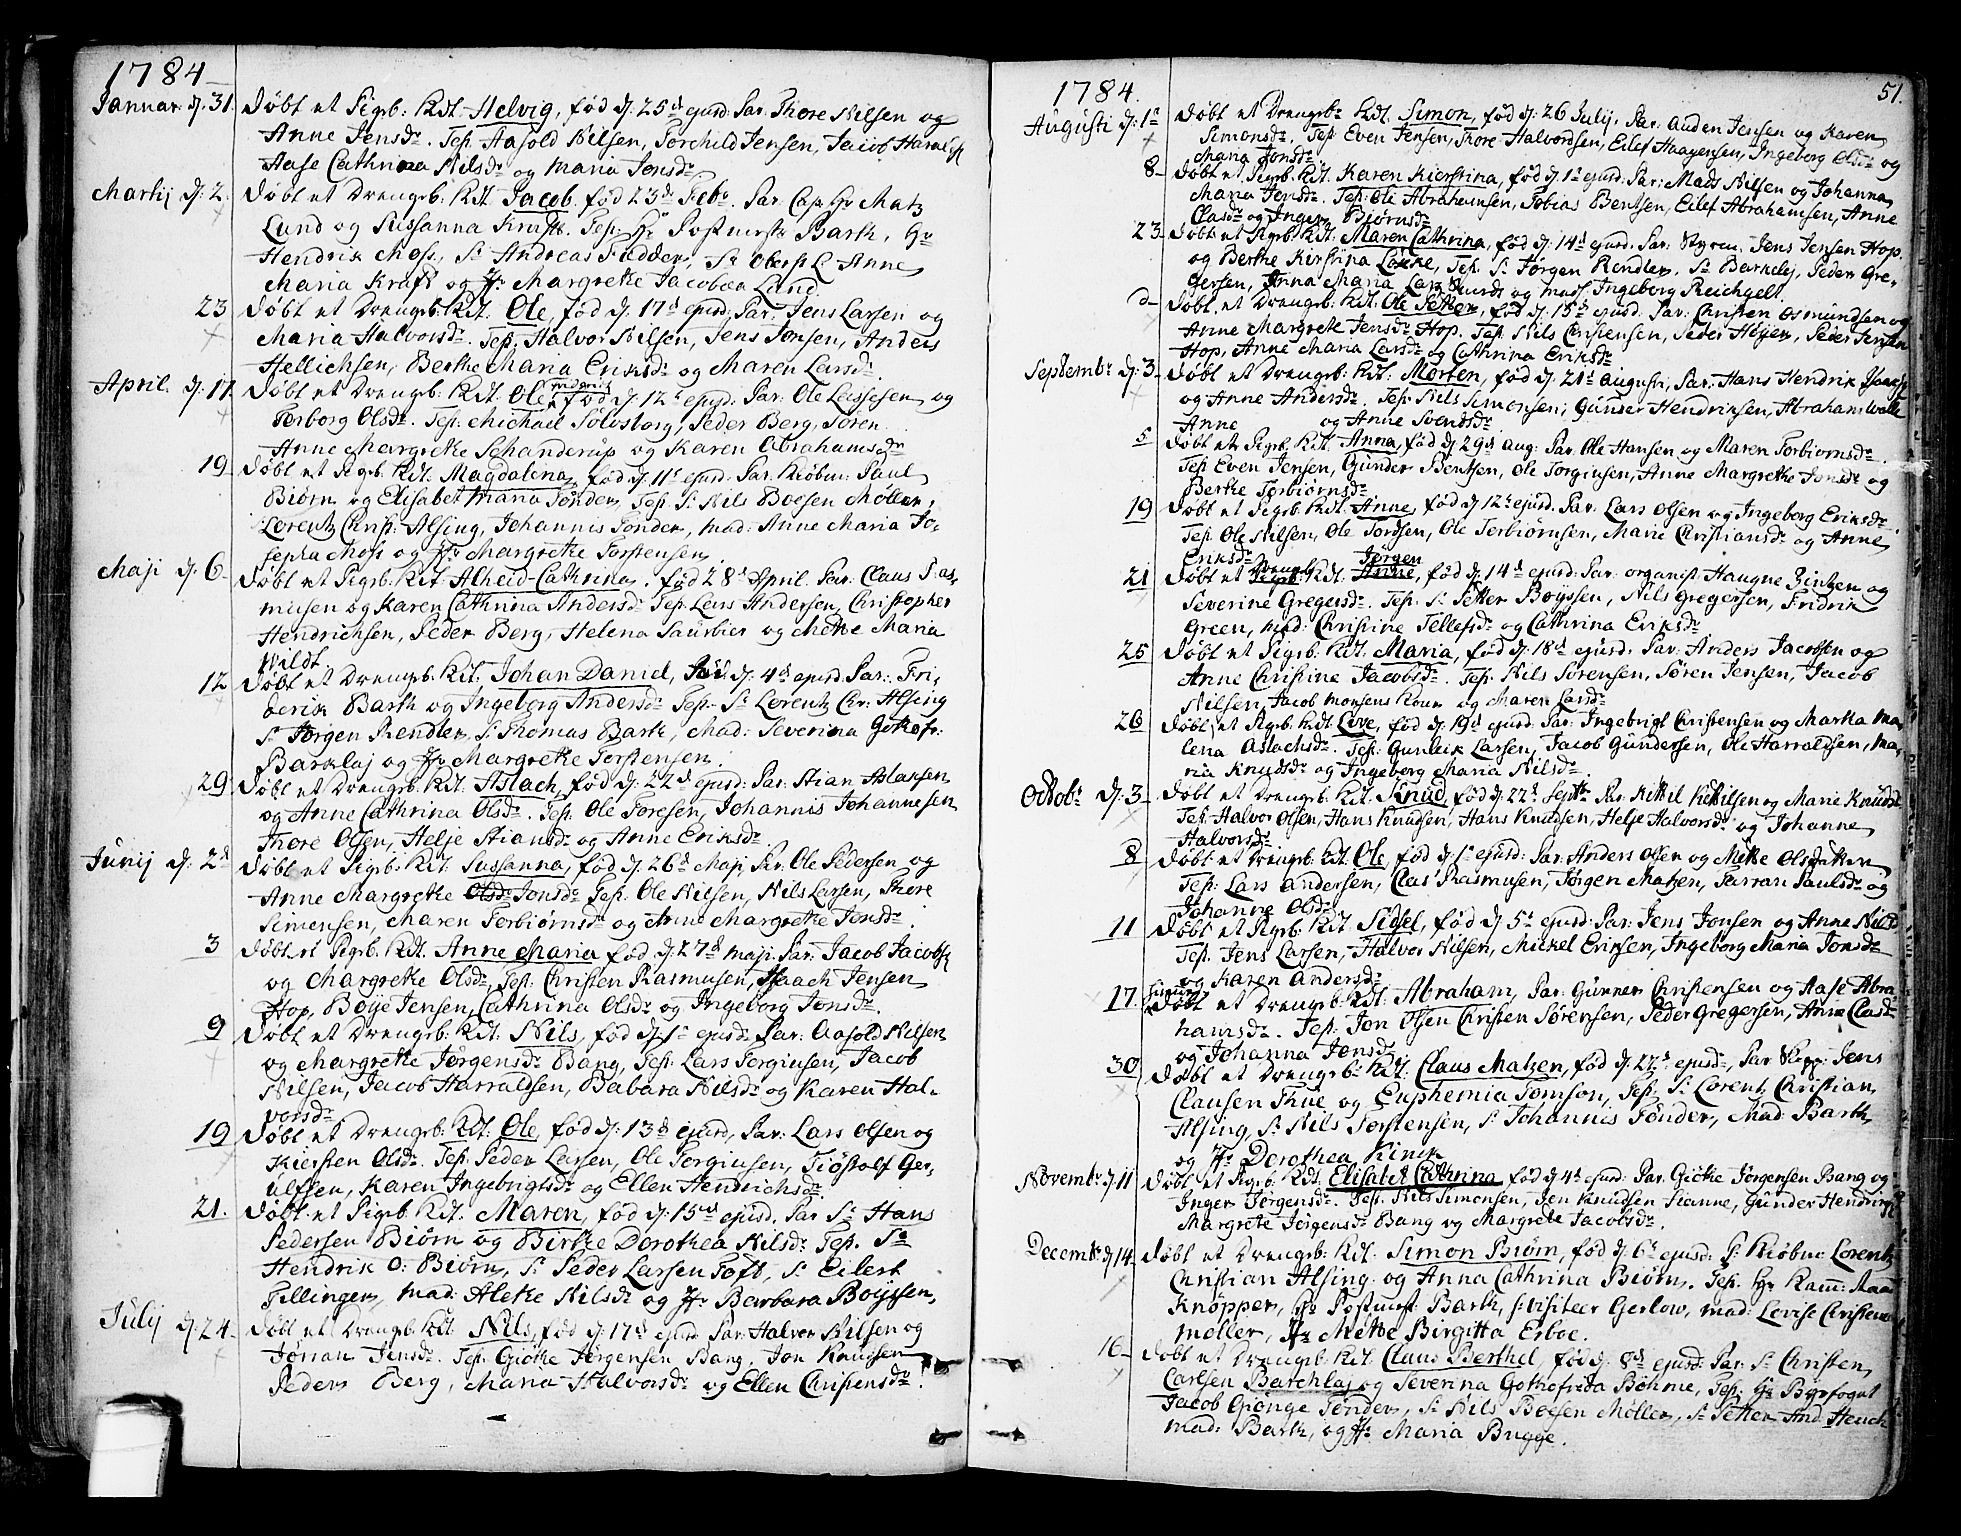 1784
Januar: d. 31. Døbt et Pigeb: Kdt. Helvig, fød d. 25d ejusd: Par: Thore Nilsen og
Anne Jensdr. Tesp: Aasold Nilsen, Torchild Jensen, Jacob Haralds
Aase Cathrina Nilsdr og Maria Jonsdr
Martij d. 2. Døbt et Drengeb: Kdt. Jacob, fød 23de Febr. Par: Cap: Hr Matz
Lund og Sussanna Kraft. Tesp: Hr Postmestr Barth, Hr
Hendrik Moss, Sr Andreas Fedder, Fr Oberst L. Anne
Maria Kraft og Jfr Margrethe Jacobæa Lund
23 Døbt et Drengeb: Kdt. Ole, fød d. 17d ejusd: Par: Jens Larsen og
Maria Halvorsdr. Tesp: Halvor Nilsen, Jens Jonsen, Anders
Hellichsen, Berthe Maria Eriksdr og Maren Larsdr.
April d. 17. Døbt et Drengeb: Kdt. Ole, fød d. 12t ejusd: Par: Ole og
Torborg Olsdr. Tesp: Michael Sølvstorg, Peder Berg, Søren
Anne Margrethe Schanderup og Karen Abrahamsdr
19. Døbt et Pigeb. Kdt. Magdalena, fød d. 11t ejusd: Par: Kiøbm: Paul
Biørn og Elisabet Maria Tønder, Tesp: Sr Nils Boesen Møller,
Lorentz Christ: Alsing, Johannis Tønder, Mad: Anne Maria Jo-
sepha Moss og Jfr Margrethe Torstensen
Maji d. 6. Døbt et Pigeb: Kdt. Alheid-Cathrina, fød 28d April. Par: Claus Ras-
musen og Karen Cathrina Andersdr Tesp: Lars Andersen, Christopher
Hendrichsen, Peder Berg, Helena Saurbier og Mette Maria
Wildt
12 Døbt et Drengeb: Kdt. Johan Daniel, fød d. 4d ejusd: Par: Fri-
derik Barth og Ingeborg Andersdr Tesp: Sr Lorentz Chr: Alsing
Sr Jørgen Rendler, Sr Thomas Barth, Mad: Severina Gothofr:
Barklaj og Jfr Margrethe Torstensen.
29 Døbt et Drengeb: Kdt. Aslach, fød d. 22d ejusd: Par: Stian Aslaksen
og Anne Cathrina Olsdr. Tesp: Ole Toresen, Johannis Johannesen
Thore Olsen, Helje Stiansdr og Anne Eriksdr.
Junij d. 2d Døbt et Pigeb: Kdt: Sussanna, fød d. 26d Maji Par: Ole Pedersen og
Anne Margrethe Olsdr Jonsdr Tesp: Ole Nilsen, Nils Larsen, Thore
Simensen, Maren Torbiørnsdr og Anne Margrethe Jensdr
3 Døbt et Pigeb: Kdt. Anne Maria fød d. 27d Maji. Par: Jacob Jacobs
og Margrethe Olsdr, Tesp: Christen Rasmusen, Isaach Jensen
Hop, Boye Jensen, Cathrina Olsdr og Ingeborg Jonsdr.
9 Døbt et Drengeb: Kdt. Nils, fød d. 1st ejusdr Par: Aasold Nilsen
og Margrethe Jørgensdr Bang, Tesp: Lars Torgiusen, Jacob
Nilsen, Jacob Harraldsen, Babara Nilsdr og Karen Hal-
vorsdr
19 Døbt et Drengeb: Kdt: Ole, fød d. 13d ejusd, Par: Lars Olsen og
Kiersten Olsdr. Tesp: Peder Larsen, Ole Torgiusen, Tiøstolf Ger-
ulfsen, Karen Ingebrigtsdr og Ellen Hendrichsdr.
21. Døbt et Pigeb. Kdt. Maren, fød d. 15d ejusd. Par Sr Hans
Pedersen Biørn og Birthe Dorothea Nilsdr Tesp. Sr
Hendrik O: Biørn, Sr Peder Larsen Toft, Sr Eilert
Tellingen, Mad: Alethe Nilsdr og Jfr Barbara Boyssen,
Julij d. 24. Døbt et Drengeb: Kdt. Nils, fød d. 17d ejusd Par: Halvor Nilsen og
Jørran Jensdr. Tesp: Giøthe Jørgensen Bang, Jon Knudsen
Peder Berg, Maria Halvorsdr og Ellen Christensdr.
1784. 51.
Augusti d. 1st Døbt et Drengeb: Kdt. Simon, fød d. 26 Julij. Par: Auden Jensen og Karen
Simonsdr. Tesp: Even Jensen, Thore Halvordsen, Eilef Haagensen, Ingeborg Olsdr og
Maria Jonsdr.
8- Døbt et Pigeb. Kdt. Karen Kierstina, fød d. 1st ejusd: Par: Mads Nilsen og Johanna
Maria Jensdr. Tesp: Ole Abrahamsen, Tobias Bentsen, Eilef Abrahamsen, Anne
Clasdr og Inger Biørnsdr
23. Døbt et Pigeb. Kdt: Maren Cathrina, fød d. 14d ejusd. Par: Styrm. Jens Jensen Hop.
og Berthe Kirstina Locke, Tesp: Sr Jørgen Rendler, Sr Barkelej, Peder Gre-
gersen, Anna Maria Lars og Mad. Ingeborg Reichgelt.
d- Døbt et Drengeb: Kdt. Ole Petter, fød d. 15d ejusd: Par: Christen Osmundsen og
Anne Margrethe Jensdr Hop. Tesp: Nils Christensen, Peder Høyer, Peder Jensen
Hop, Anne Maria Larsdr og Cathrina Eriksdr
Septembr: d. 3- Døbt et Drengeb: Kdt. Morten, fød d. 21d Augusti, Par: Hans Hendrik Isaachs
og Anne Andersdr. Tesp: Nils Simonsen, Gunder Hendriksen, Abraham Wolle
Anne og Anne Svendsdr.
5 Døbt et Pigeb. Kdt. Anna, fød d. 29d Aug: Par. Ole Hansen og Maren Torbiørnsdr.
Tesp Even Jensen, Gunder Bentsen, Ole Torgiusen, Anne Margrethe Jonsdr og
Berthe Torbiørnsdr
19 Døbt et Pigeb: Kdt: Anne, fød d. 12t ejusd. Par. Lars Olsen og Ingeborg Eriksdr.
Tesp: Ole Nilsen, Ole Tordsen, Ole Torbiørnsen, Marie Christiansdr og Anne
Eriksdr
21 Døbt et Drengeb: Kdt. Jørgen, fød d. 14d ejusd: Par: Organist: Haugne Zintzen og
Severine Gregersdr. Tesp: Sr Petter Boyssen, Nils Gregersen, Fridrik
Green, Mad: Christine Tellefsdr og Cathrina Eriksdr
25 Døbt et Pigeb. Kdt. Maria, fød d. 18d ejusd. Par: Anders Jacobsen og
Anne Christine Jacobsdr. Tesp: Nils Sørensen, Søren Jensen, Jacob
Nilsen, Jacob Monsens Kone og Maren Larsdr
26 Døbt et Pigeb: Kdt. Live, fød d. 19d ejusd Par: Ingebrigt Christensen og Martha Ma-
lena Aslachsdr. Tesp: Gunleik Larsen, Jacob Gundersen, Ole Harraldsen, Ma-
ria Knudsdr og Ingeborg Maria Nilsdr.
Octobr: d. 3- Døbt et Drengeb: Kdt. Knud, fød d. 22d Septbr Par: Kittil Kittilsen og Marie Knudsdr
Tesp: Halvor Olsen, Hans Knudsen, Hans Knudsen, Helje Halvorsdr og Johanne
Halvorsdr
8 Døbt et Drengeb: Kdt. Ole, fød d. 1st ejusd: Par: Anders Olsen og Mette Olsdatter
Tesp: Lars Andersen, Clas Rasmusen, Jørgen Matzen, Tarran Paulsdr og
Johanne Olsdr
11 Døbt et Pigeb. Kdt. Sidsel, fød d. 5t ejusd: Par: Jens Jonsen og Anne Nilsd
Tesp. Jens Larsen, Halvor Nilsen, Mickel Eriksen, Ingeborg Maria Jonsdr
og Karen Andersdr
17. Døbt et Drengeb: Kdt. Abraham, Par: Gunner Christensen og Aase Abra-
hamsdr. Tesp: Jon Olsen, Christen Sørensen, Peder Gregersen, Anne Clasdr
og Johanna Jensdr
30 Døbt et Drengeb: Kdt. Claus Matzen, fød d. 27d ejusd, Par Skipp: Jens
Clausen Thue og Euphemia Tomson, Tesp: Sr Lorentz Christian
Alsing, Sr Nils Torstensen, Sr Johannis Tønder, Mad: Barth,
og Jfr Dorothea Kinck
Novembr: d. 11 Døbt et Pigeb: Kdt. Elisabet Cathrina fød d. 4d ejusd Par: Giøthe Jørgensen Bang og
Inger Jørgensdr. Tesp: Nils Simonsen, Jen Knudsen Stanne, Gunder Hendriks
Margrete Jørgensdr Bang og Margrete Jacobsdr.
Decembr: d. 14. Døbt et Drengeb: Kdt. Simon Biørn, fød d. 6t ejusd: P: Kiøbm: Lorentz
Christian Alsing og Anna Cathrina Biørn. Tesp: Hr Kam:
Knøpper, Hr Postmest: Barth, Sr Visiteer Gerlow, Mad: Lovise Christine
Møller, Jfr Mette Birgitta Esboe.
16- Døbt et Drengeb: Kdt. Claus Berthel, fød d. 8d ejusd: Par. Sr Christen
Carlsen Barchlaj og Severina Gothofreda Bøhme, Tesp: Hr Byefogat
Jacob Giønge Tønder, Sr Nils Boesen Møller, Sr Petter And. Heuch
Mad: Barth, og Jfr Maria Bugge.